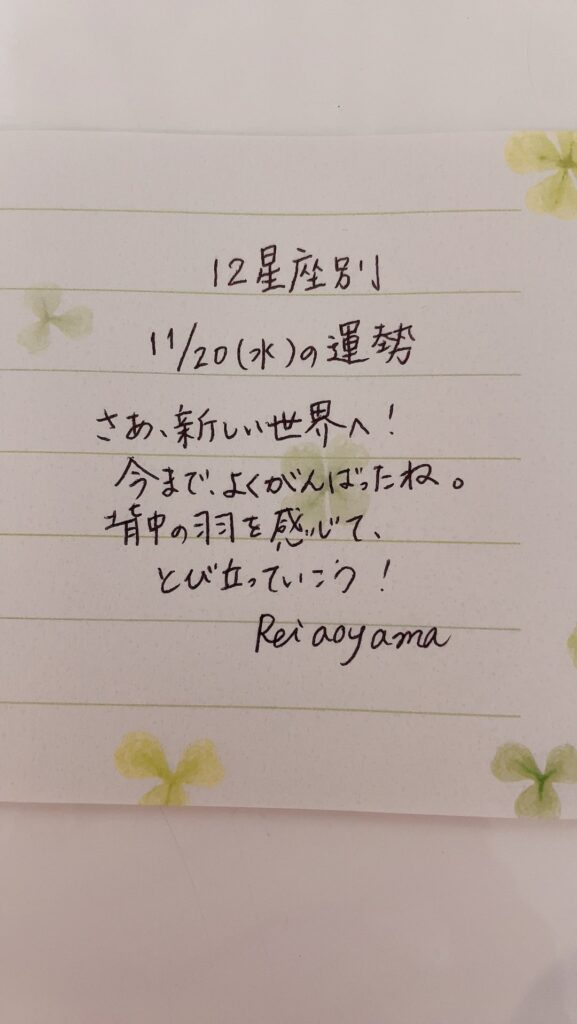 12星座別
11/20(水)の運勢
さあ、新しい世界へ!
今まで、よくがんばったね。
背中の羽を感じて、
とび立っていこう!
Rei aoyama